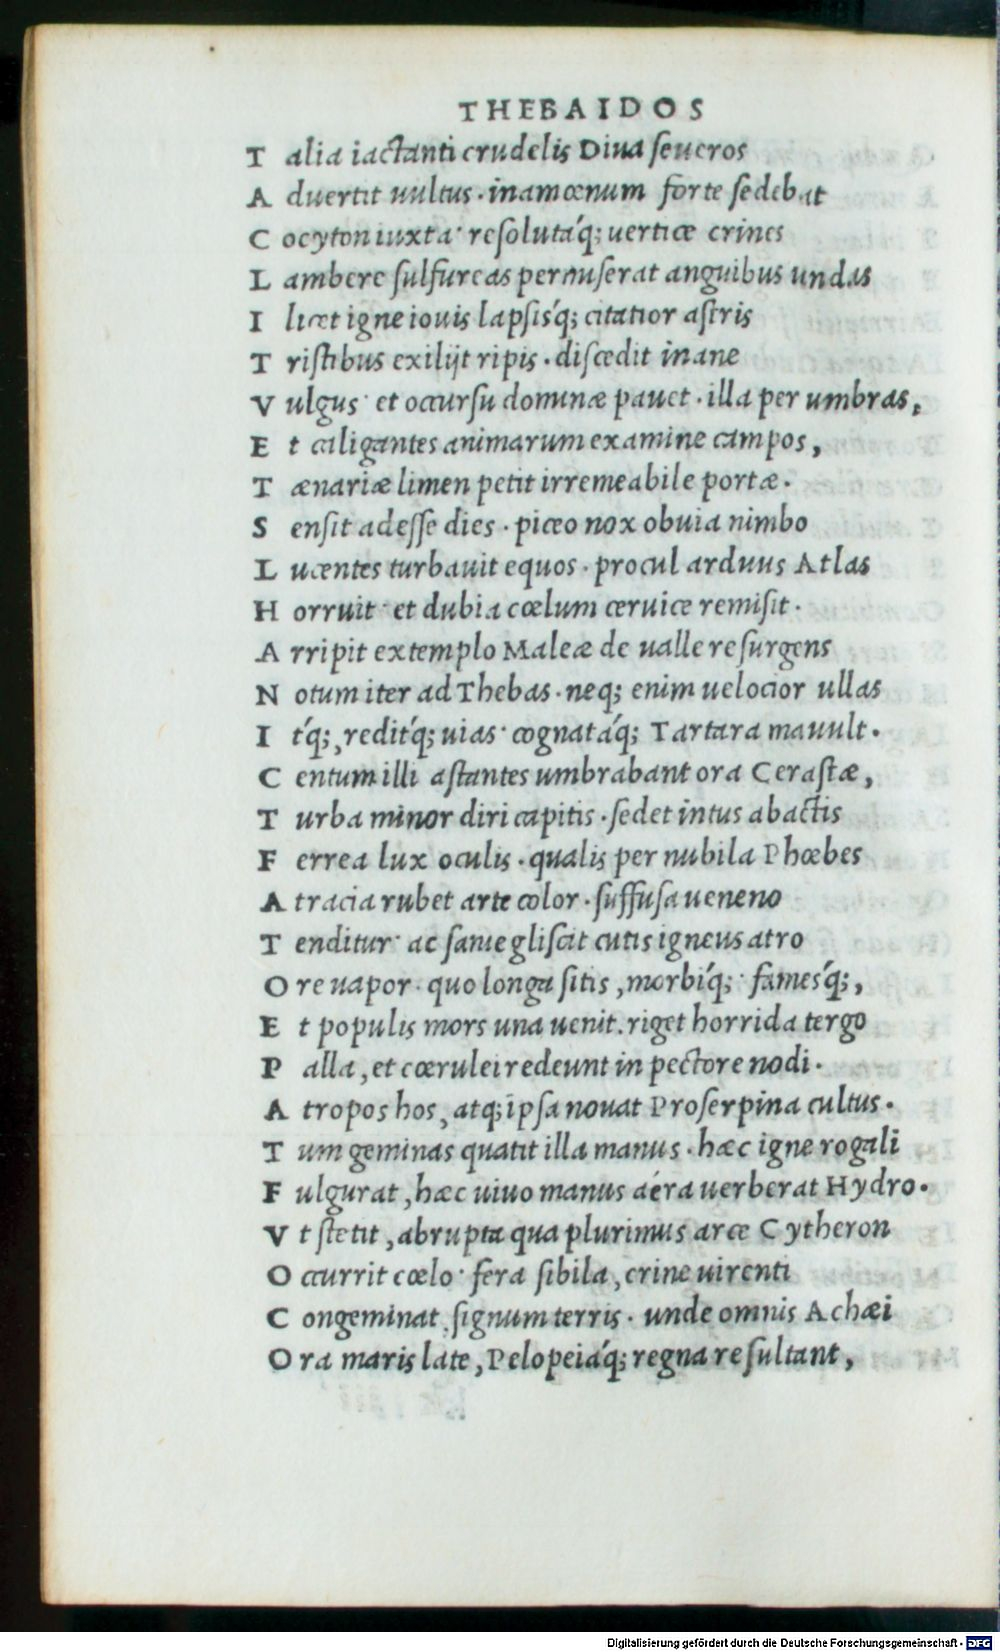 THEBAIDOS
T alia iactanti crudelis Diua seueros
A duertit uultus·inamœnum forte sedebat
C ocyton iuxta· resolutáq; uertice crines
L ambere sulfureas permiserat anguibus undas
I licet igne iouis lapsisq́; citatior astris
T ristibus exilijt ripis·discedit inane
V ulgus· et occursu dominæ pauet·illa per umbras,
E t caligantes animarum examine campos,
T ænariæ limen petit irremeabile portæ.
S ensit adesse dies·piceo nox obuia nimbo
L ucentes turbauit equos·procul arduus Atlas
H orruit· et dubia cœlum ceruice remisit.
A rripit extemplo Maleæ de ualle resurgens
N otum iter ad Thebas·neq; enim uelocior ullas
I tq́;, reditq́; uias· cognatáq; Tartara mauult.
C entum illi astantes umbrabant ora Cerastæ,
T urba minor diri capitis·sedet intus abactis
F errea lux oculis·qualis per nubila Phœbes
A tracia rubet arte color·suffusa ueneno
T enditur· ac sanie gliscit cutis igneus atro
O re uapor·quo longa sitis, morbiq́;· famesq́;,
E t populis mors una uenit. riget horrida tergo
P alla, et cœrulei redeunt in pectore nodi.
A tropos hos, atq; ipsa nouat Proserpina cultus.
T um geminas quatit illa manus·hæc igne rogali
F ulgurat, hæc uiuo manus aéra uerberat Hydro.
V t stetit, abrupta qua plurimus arce Cytheron
O ccurrit cœlo· fera sibila, crine uirenti
C ongeminat, signum terris· unde omnis Achæi
O ra maris late, Pelopeiáq; regna resultant,
Digitalisierung gefördert durch die Deutsche Forschungsgemeinschaft - DFG